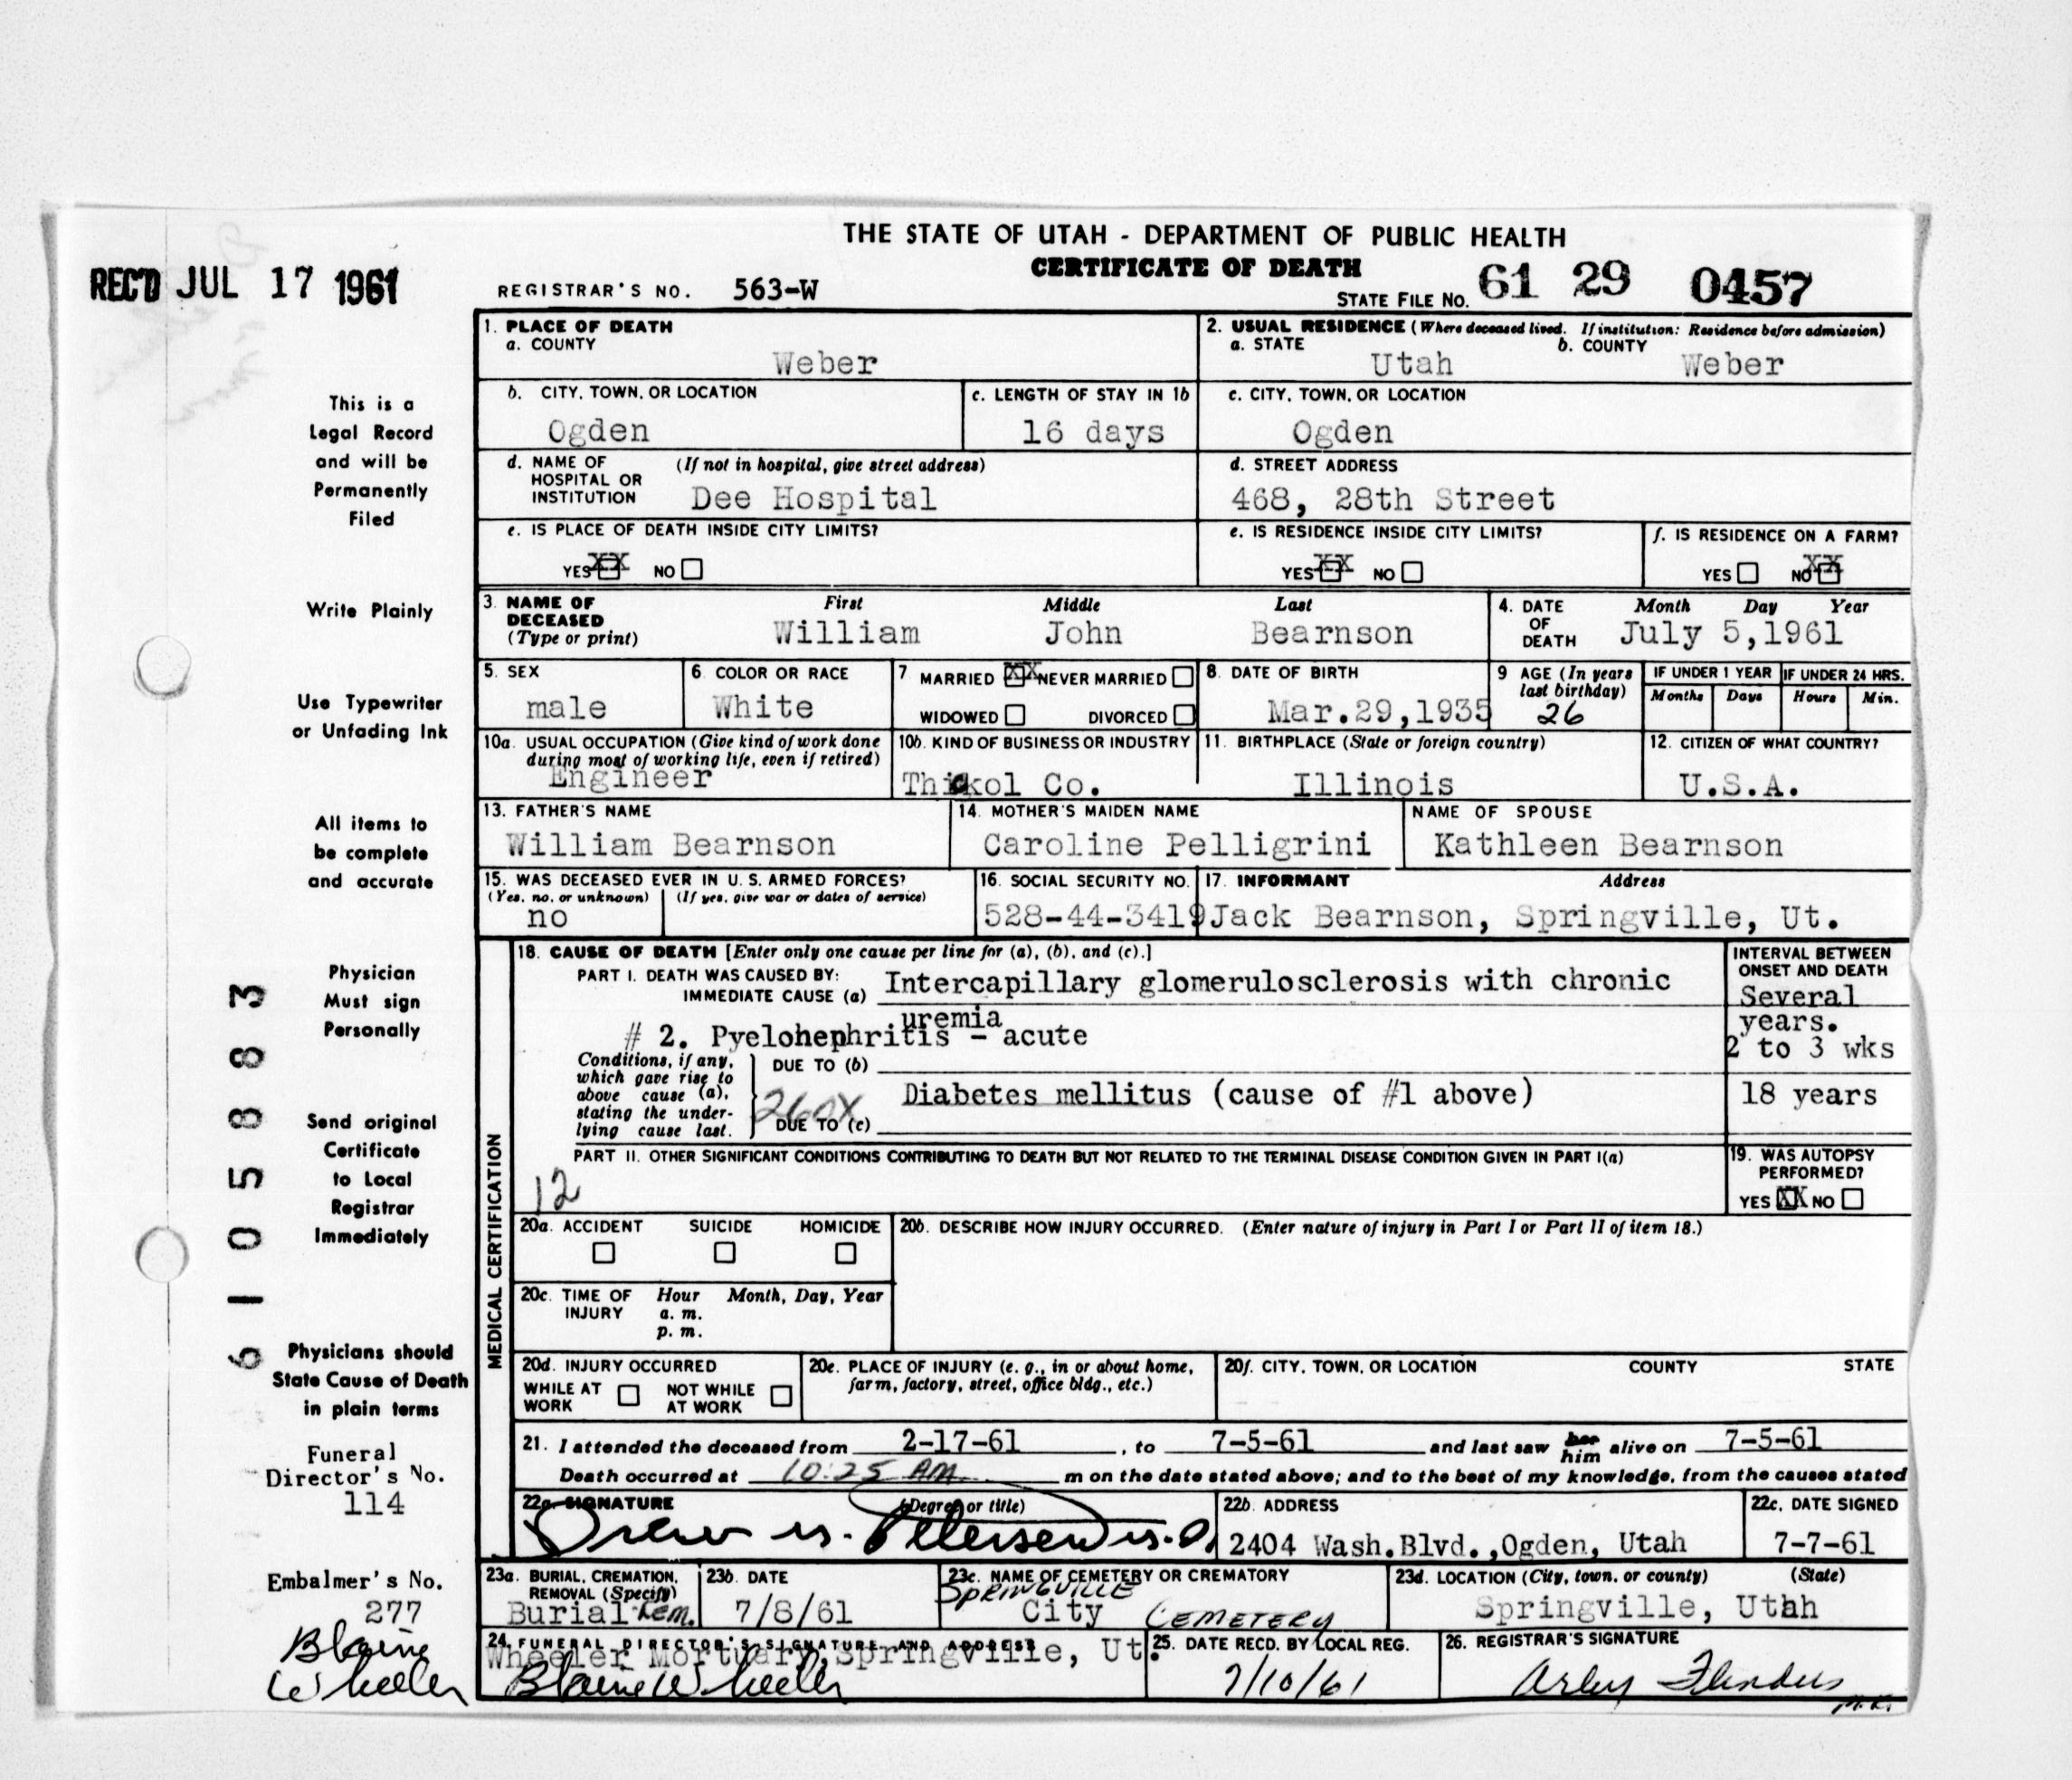 THE STATE OF UTAH - DEPARTMENT OF PUBLIC HEALTH
CERTIFICATE OF DEATH
REC'D JUL 17 1961
REGISTRAR'S NO. 563-W
STATE FILE NO. 61 29 0457
1. PLACE OF DEATH
a. COUNTY
Weber
2. USUAL RESIDENCE (Where deceased lived. If institution: Residence before admission)
a. STATE Utah b. COUNTY Weber
b. CITY, TOWN, OR LOCATION
Ogden
c. LENGTH OF STAY IN 1b
16 days
c. CITY, TOWN, OR LOCATION
Ogden
d. NAME OF HOSPITAL OR INSTITUTION (If not in hospital, give street address)
Dee Hospital
d. STREET ADDRESS
468, 28th Street
e. IS PLACE OF DEATH INSIDE CITY LIMITS?
YES XX NO
e. IS RESIDENCE INSIDE CITY LIMITS?
YES XX NO
f. IS RESIDENCE ON A FARM?
YES NO XX
3. NAME OF DECEASED (Type or print)
First Middle Last
William John Bearnson
4. DATE OF DEATH
Month Day Year
July 5,1961
5. SEX
male
6. COLOR OR RACE
White
7 MARRIED XX NEVER MARRIED
WIDOWED DIVORCED
8. DATE OF BIRTH
Mar.29,1935
9 AGE (In years last birthday)
26
IF UNDER 1 YEAR
Months Days
IF UNDER 24 HRS.
Hours Min.
10a. USUAL OCCUPATION (Give kind of work done during most of working life, even if retired)
Engineer
10b. KIND OF BUSINESS OR INDUSTRY
Thiokol Co.
11. BIRTHPLACE (State or foreign country)
Illinois
12. CITIZEN OF WHAT COUNTRY?
U.S.A.
13. FATHER'S NAME
William Bearnson
14. MOTHER'S MAIDEN NAME
Caroline Pelligrini
NAME OF SPOUSE
Kathleen Bearnson
15. WAS DECEASED EVER IN U. S. ARMED FORCES?
(Yes, no, or unknown) (If yes, give war or dates of service)
no
16. SOCIAL SECURITY NO.
528-44-3419
17. INFORMANT Address
Jack Bearnson, Springville, Ut.
MEDICAL CERTIFICATION
18. CAUSE OF DEATH [Enter only one cause per line for (a), (b), and (c).]
PART I. DEATH WAS CAUSED BY:
IMMEDIATE CAUSE (a) Intercapillary glomerulosclerosis with chronic
uremia
# 2. Pyelohephritis - acute
Conditions, if any, which gave rise to above cause (a), stating the underlying cause last.
DUE TO (b)
Diabetes mellitus (cause of #1 above)
260X
DUE TO (c)
INTERVAL BETWEEN ONSET AND DEATH
Several
years.
2 to 3 wks
18 years
PART II. OTHER SIGNIFICANT CONDITIONS CONTRIBUTING TO DEATH BUT NOT RELATED TO THE TERMINAL DISEASE CONDITION GIVEN IN PART I(a)
12
19. WAS AUTOPSY PERFORMED?
YES XX NO
20a. ACCIDENT SUICIDE HOMICIDE
20b. DESCRIBE HOW INJURY OCCURRED. (Enter nature of injury in Part I or Part II of item 18.)
20c. TIME OF INJURY Hour Month, Day, Year
a. m.
p. m.
20d. INJURY OCCURRED
WHILE AT WORK NOT WHILE AT WORK
20e. PLACE OF INJURY (e. g., in or about home, farm, factory, street, office bldg., etc.)
20f. CITY, TOWN, OR LOCATION COUNTY STATE
21. I attended the deceased from 2-17-61, to 7-5-61 and last saw her him alive on 7-5-61
Death occurred at 10:25 AM. m on the date stated above; and to the best of my knowledge, from the causes stated
22a. SIGNATURE (Degree or title)
Drew M. Petersen M.D.
22b. ADDRESS
2404 Wash.Blvd.,Ogden, Utah
22c. DATE SIGNED
7-7-61
23a. BURIAL, CREMATION, REMOVAL (Specify)
Burial Rem.
23b. DATE
7/8/61
23c. NAME OF CEMETERY OR CREMATORY
SPRINGVILLE
City CEMETERY
23d. LOCATION (City, town, or county) (State)
Springville, Utah
24. FUNERAL DIRECTOR'S SIGNATURE AND ADDRESS
Wheeler Mortuary,Springville, Ut.
Blaine Wheeler
25. DATE RECD. BY LOCAL REG.
7/10/61
26. REGISTRAR'S SIGNATURE
Arley Flinders
M.K.
This is a
Legal Record
and will be
Permanently
Filed
Write Plainly
Use Typewriter
or Unfading Ink
All items to
be complete
and accurate
Physician
Must sign
Personally
Send original
Certificate
to Local
Registrar
Immediately
Physicians should
State Cause of Death
in plain terms
Funeral
Director's No.
114
Embalmer's No.
277
Blaine
Wheeler
6105883